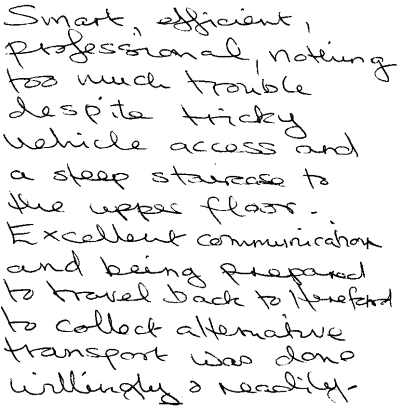 Smart, efficient,
professional, nothing
too much trouble
despite tricky
vehicle access and
a steep staircase to
the upper floor.
Excellent communication
and being prepared
to travel back to Hereford
to collect alternative
transport was done
willingly & readily.